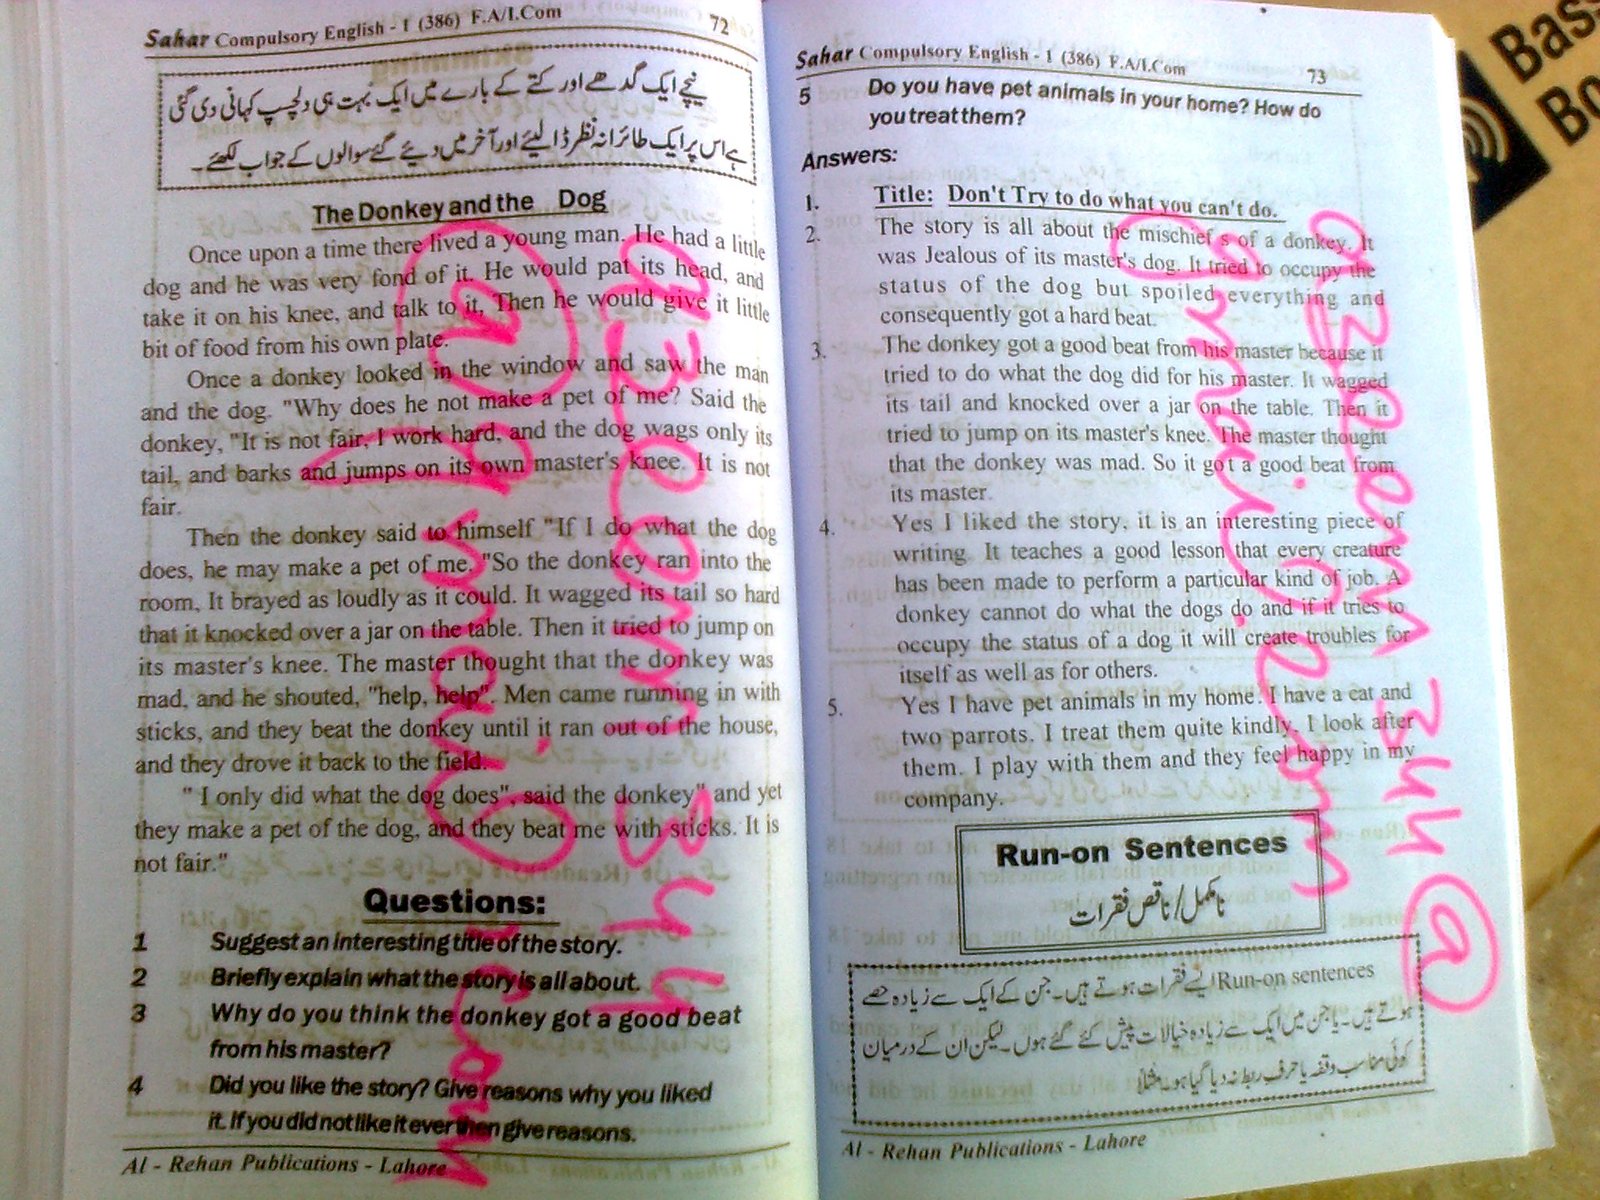 Sahar Compulsory English - 1 (386) F.A/I.Com 72
نیچے ایک گدھے اور کتے کے بارے میں ایک بہت ہی دلچسپ کہانی دی گئی
ہے اس پر ایک طائرانہ نظر ڈالیئے اور آخر میں دیئے گئے سوالوں کے جواب لکھئے۔
The Donkey and the Dog
Once upon a time there lived a young man. He had a little
dog and he was very fond of it. He would pat its head, and
take it on his knee, and talk to it, Then he would give it little
bit of food from his own plate.
Once a donkey looked in the window and saw the man
and the dog. "Why does he not make a pet of me? Said the
donkey, "It is not fair, I work hard, and the dog wags only its
tail, and barks and jumps on its own master's knee. It is not
fair.
Then the donkey said to himself "If I do what the dog
does, he may make a pet of me. "So the donkey ran into the
room, It brayed as loudly as it could. It wagged its tail so hard
that it knocked over a jar on the table. Then it tried to jump on
its master's knee. The master thought that the donkey was
mad, and he shouted, "help, help". Men came running in with
sticks, and they beat the donkey until it ran out of the house,
and they drove it back to the field.
" I only did what the dog does", said the donkey" and yet
they make a pet of the dog, and they beat me with sticks. It is
not fair."
Questions:
1 Suggest an interesting title of the story.
2 Briefly explain what the story is all about.
3 Why do you think the donkey got a good beat
from his master?
4 Did you like the story? Give reasons why you liked
it. If you did not like it ever then give reasons.
Al - Rehan Publications - Lahore
Sahar Compulsory English - 1 (386) F.A/I.Com 73
5 Do you have pet animals in your home? How do
you treat them?
Answers:
1. Title: Don't Try to do what you can't do.
2. The story is all about the mischief s of a donkey. It
was Jealous of its master's dog. It tried to occupy the
status of the dog but spoiled everything and
consequently got a hard beat.
3. The donkey got a good beat from his master because it
tried to do what the dog did for his master. It wagged
its tail and knocked over a jar on the table. Then it
tried to jump on its master's knee. The master thought
that the donkey was mad. So it got a good beat from
its master.
4. Yes I liked the story, it is an interesting piece of
writing. It teaches a good lesson that every creature
has been made to perform a particular kind of job. A
donkey cannot do what the dogs do and if it tries to
occupy the status of a dog it will create troubles for
itself as well as for others.
5. Yes I have pet animals in my home. I have a cat and
two parrots. I treat them quite kindly. I look after
them. I play with them and they feel happy in my
company.
Run-on Sentences
نامکمل/ناقص فقرات
Run-on sentences ایسے فقرات ہوتے ہیں۔ جن کے ایک سے زیادہ حصے
ہوتے ہیں۔ یا جن میں ایک سے زیادہ خیالات پیش کئے گئے ہوں۔ لیکن ان کے درمیان
کوئی مناسب وقفہ یا حرف ربط نہ دیا گیا ہو۔ مثلاً
Al - Rehan Publications - Lahore
azeem344
@gmail.com
azeem344@
gmail.com
Bas
Bo